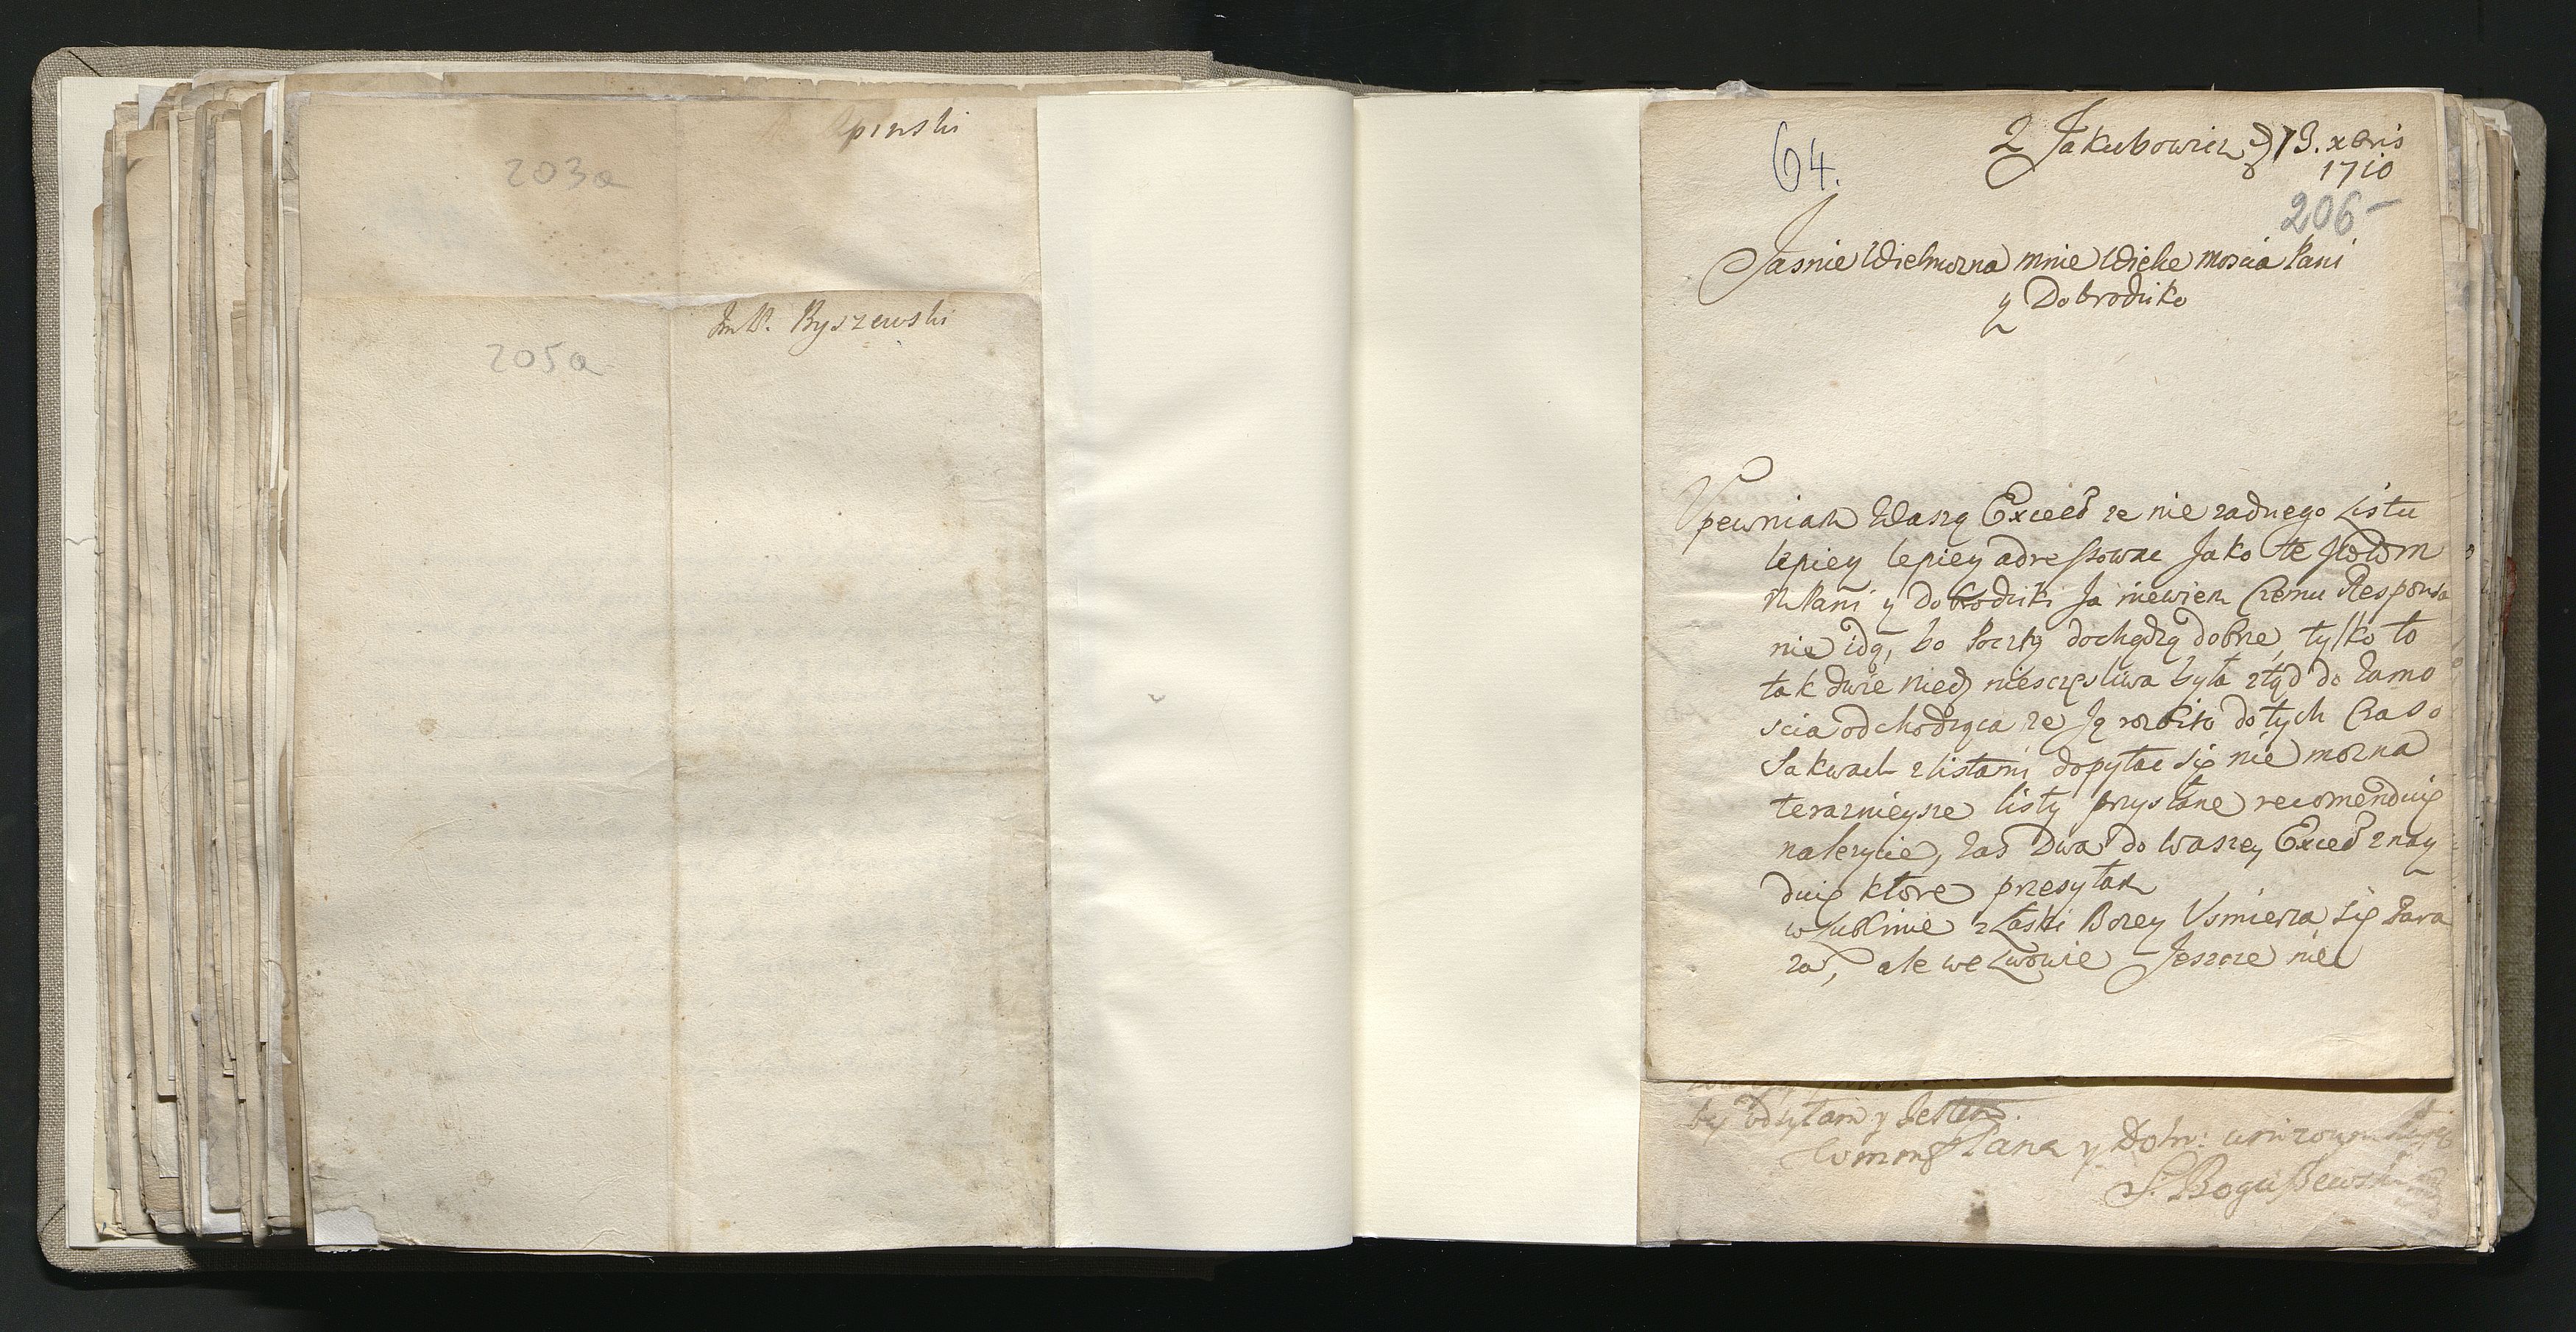 pinski
203a
Im P. Ryszewski
205a
64.
Z Jakubowicz d 13. xbris
1710
206
Jasnie Wielmozna mnie Wielce moscia Pani
y Dobrodziko
Upewniam Waszą Excell ze nie zadnego Listu
lepiey lepiey adressowac Jako te
Pani y Dobrodziki Ja niewiem Czemu Responsa
nie idą, bo Poczty dochądzą dobrze, tylko to
tak dwie nied niesczęsliwa była ztąd do Zamo
scia odchodząca ze Ją rozbito do tych Czas o
Sakwach z listami dopytac się nie mozna
teraznieysze listy przysłane recomenduię
nalezycie, zas Dwa do Waszey Excell znay
duię ktore przesyłam
w Lublinie z Łaski Bozey Usmierza się Zara
za, ale we Lwowie Jeszcze nie
odsyłam y Jestem.
Pana y Dobr:
S. Boguszewski